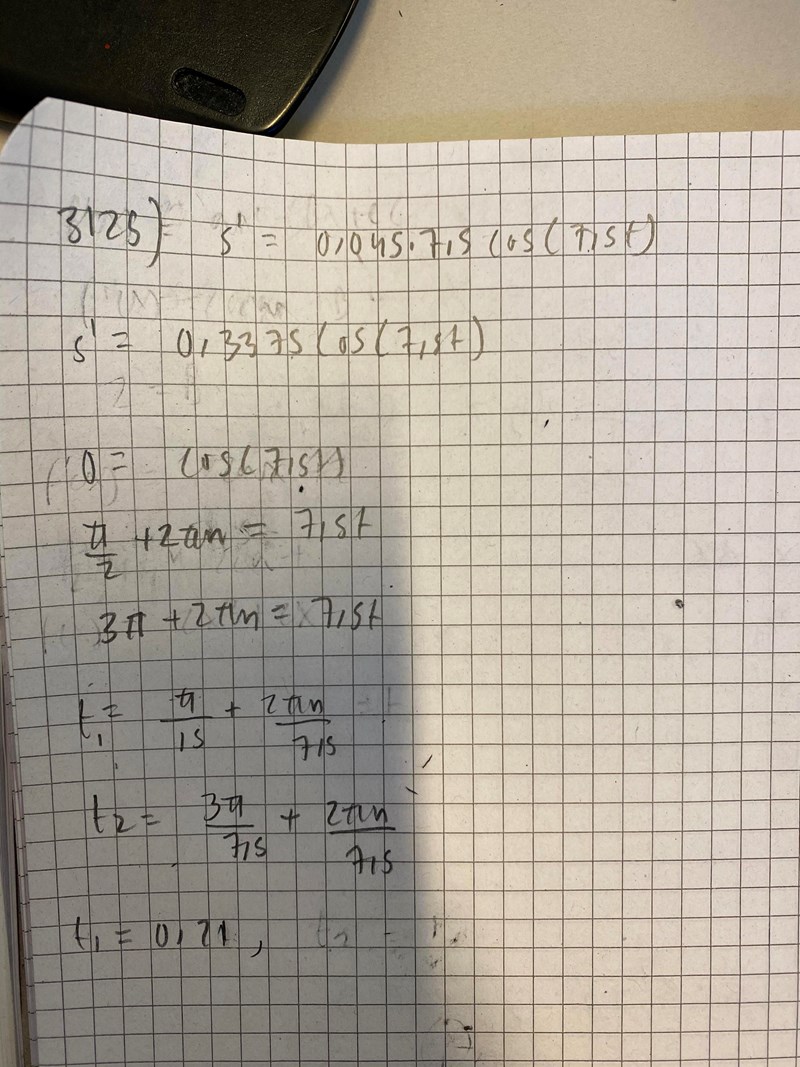 3125) s' = 0,045·7,5 cos(7,5t)
s' = 0,3375 cos(7,5t)
0 = cos(7,5t)
π/2 + 2πn = 7,5t
3π + 2πn = 7,5t
t₁ = π/15 + 2πn/7,5
t₂ = 3π/7,5 + 2πn/7,5
t₁ = 0,21,